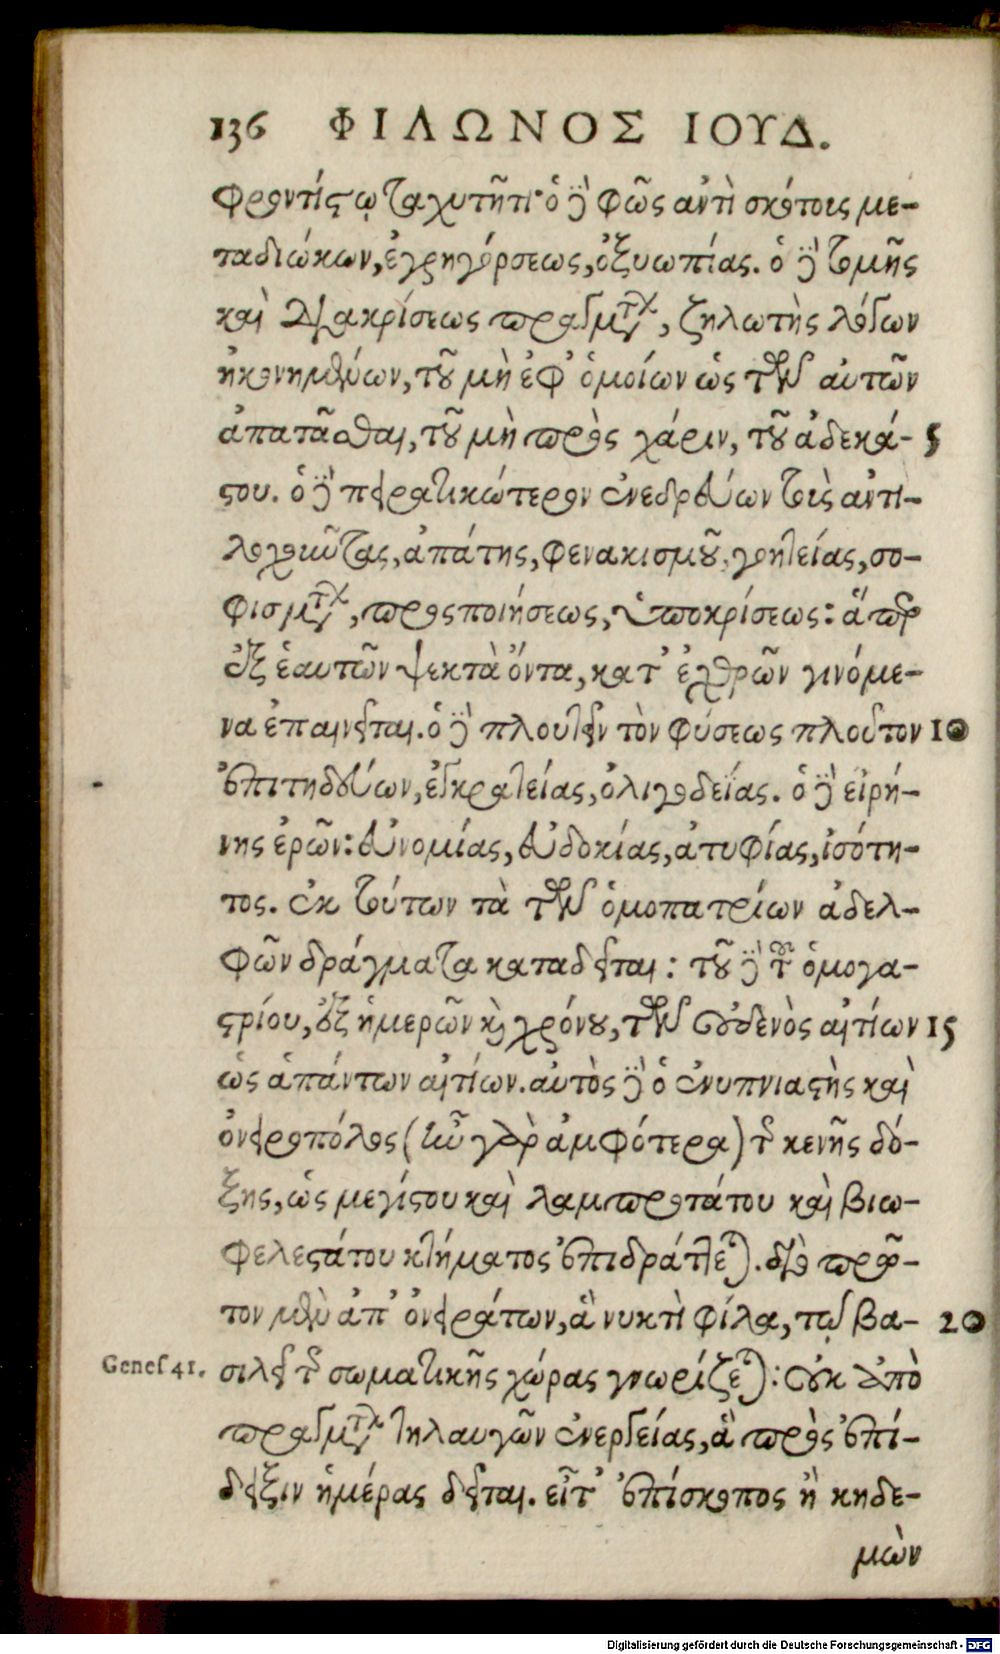 136 ΦΙΛΩΝΟΣ ΙΟΥΔ.
φροντίστῳ ταχυτῆτι· ὁ δὲ φῶς ἀντὶ σκότους με-
ταδιώκων, ἐγρηγόρσεως, ὀξυωπίας. ὁ δὲ τομῆς
καὶ διακρίσεως πραγμάτων, ζηλωτὴς λόγων
ἠκονημένων, τοῦ μὴ ἐφ' ὁμοίων ὡς τῶν αὐτῶν
ἀπατᾶσθαι, τοῦ μὴ πρὸς χάριν, τοῦ ἀδεκά- 5
στου. ὁ δὲ πειρατικώτερον ἐνεδρεύων τοὺς ἀντι-
λογοῦντας, ἀπάτης, φενακισμοῦ, γοητείας, σο-
φισμάτων, προςποιήσεως, ὑποκρίσεως: ἅπερ
ἐξ ἑαυτῶν ψεκτὰ ὄντα, κατ' ἐχθρῶν γινόμε-
να ἐπαινεῖται. ὁ δὲ πλουτεῖν τὸν φύσεως πλοῦτον 10
ἐπιτηδεύων, ἐγκρατείας, ὀλιγοδεΐας. ὁ δὲ εἰρή-
νης ἐρῶν: εὐνομίας, εὐδοκίας, ἀτυφίας, ἰσότη-
τος. ἐκ τούτων τὰ τῶν ὁμοπατρίων ἀδελ-
φῶν δράγματα καταδεῖται: τοῦ δὲ τοῦ ὁμογα-
στρίου, ἐξ ἡμερῶν καὶ χρόνου, τῶν οὐδενὸς αἰτίων 15
ὡς ἁπάντων αἰτίων. αὐτὸς δὲ ὁ ἐνυπνιαστὴς καὶ
ὀνειροπόλος (ἦν γὰρ ἀμφότερα) τῆς κενῆς δό-
ξης, ὡς μεγίστου καὶ λαμπροτάτου καὶ βιω-
φελεστάτου κτήματος ἐπιδράττεται. διὸ πρῶ-
τον μὲν ἀπ' ὀνειράτων, ἃ νυκτὶ φίλα, τῷ βα- 20
Genes 41. σιλεῖ τῆς σωματικῆς χώρας γνωρίζεται: οὐκ ἀπὸ
πραγμάτων τηλαυγῶν ἐνεργείας, ἃ πρὸς ἐπί-
δειξιν ἡμέρας δεῖται. εἶτ' ἐπίσκοπος ἢ κηδε-
μὼν
Digitalisierung gefördert durch die Deutsche Forschungsgemeinschaft - DFG